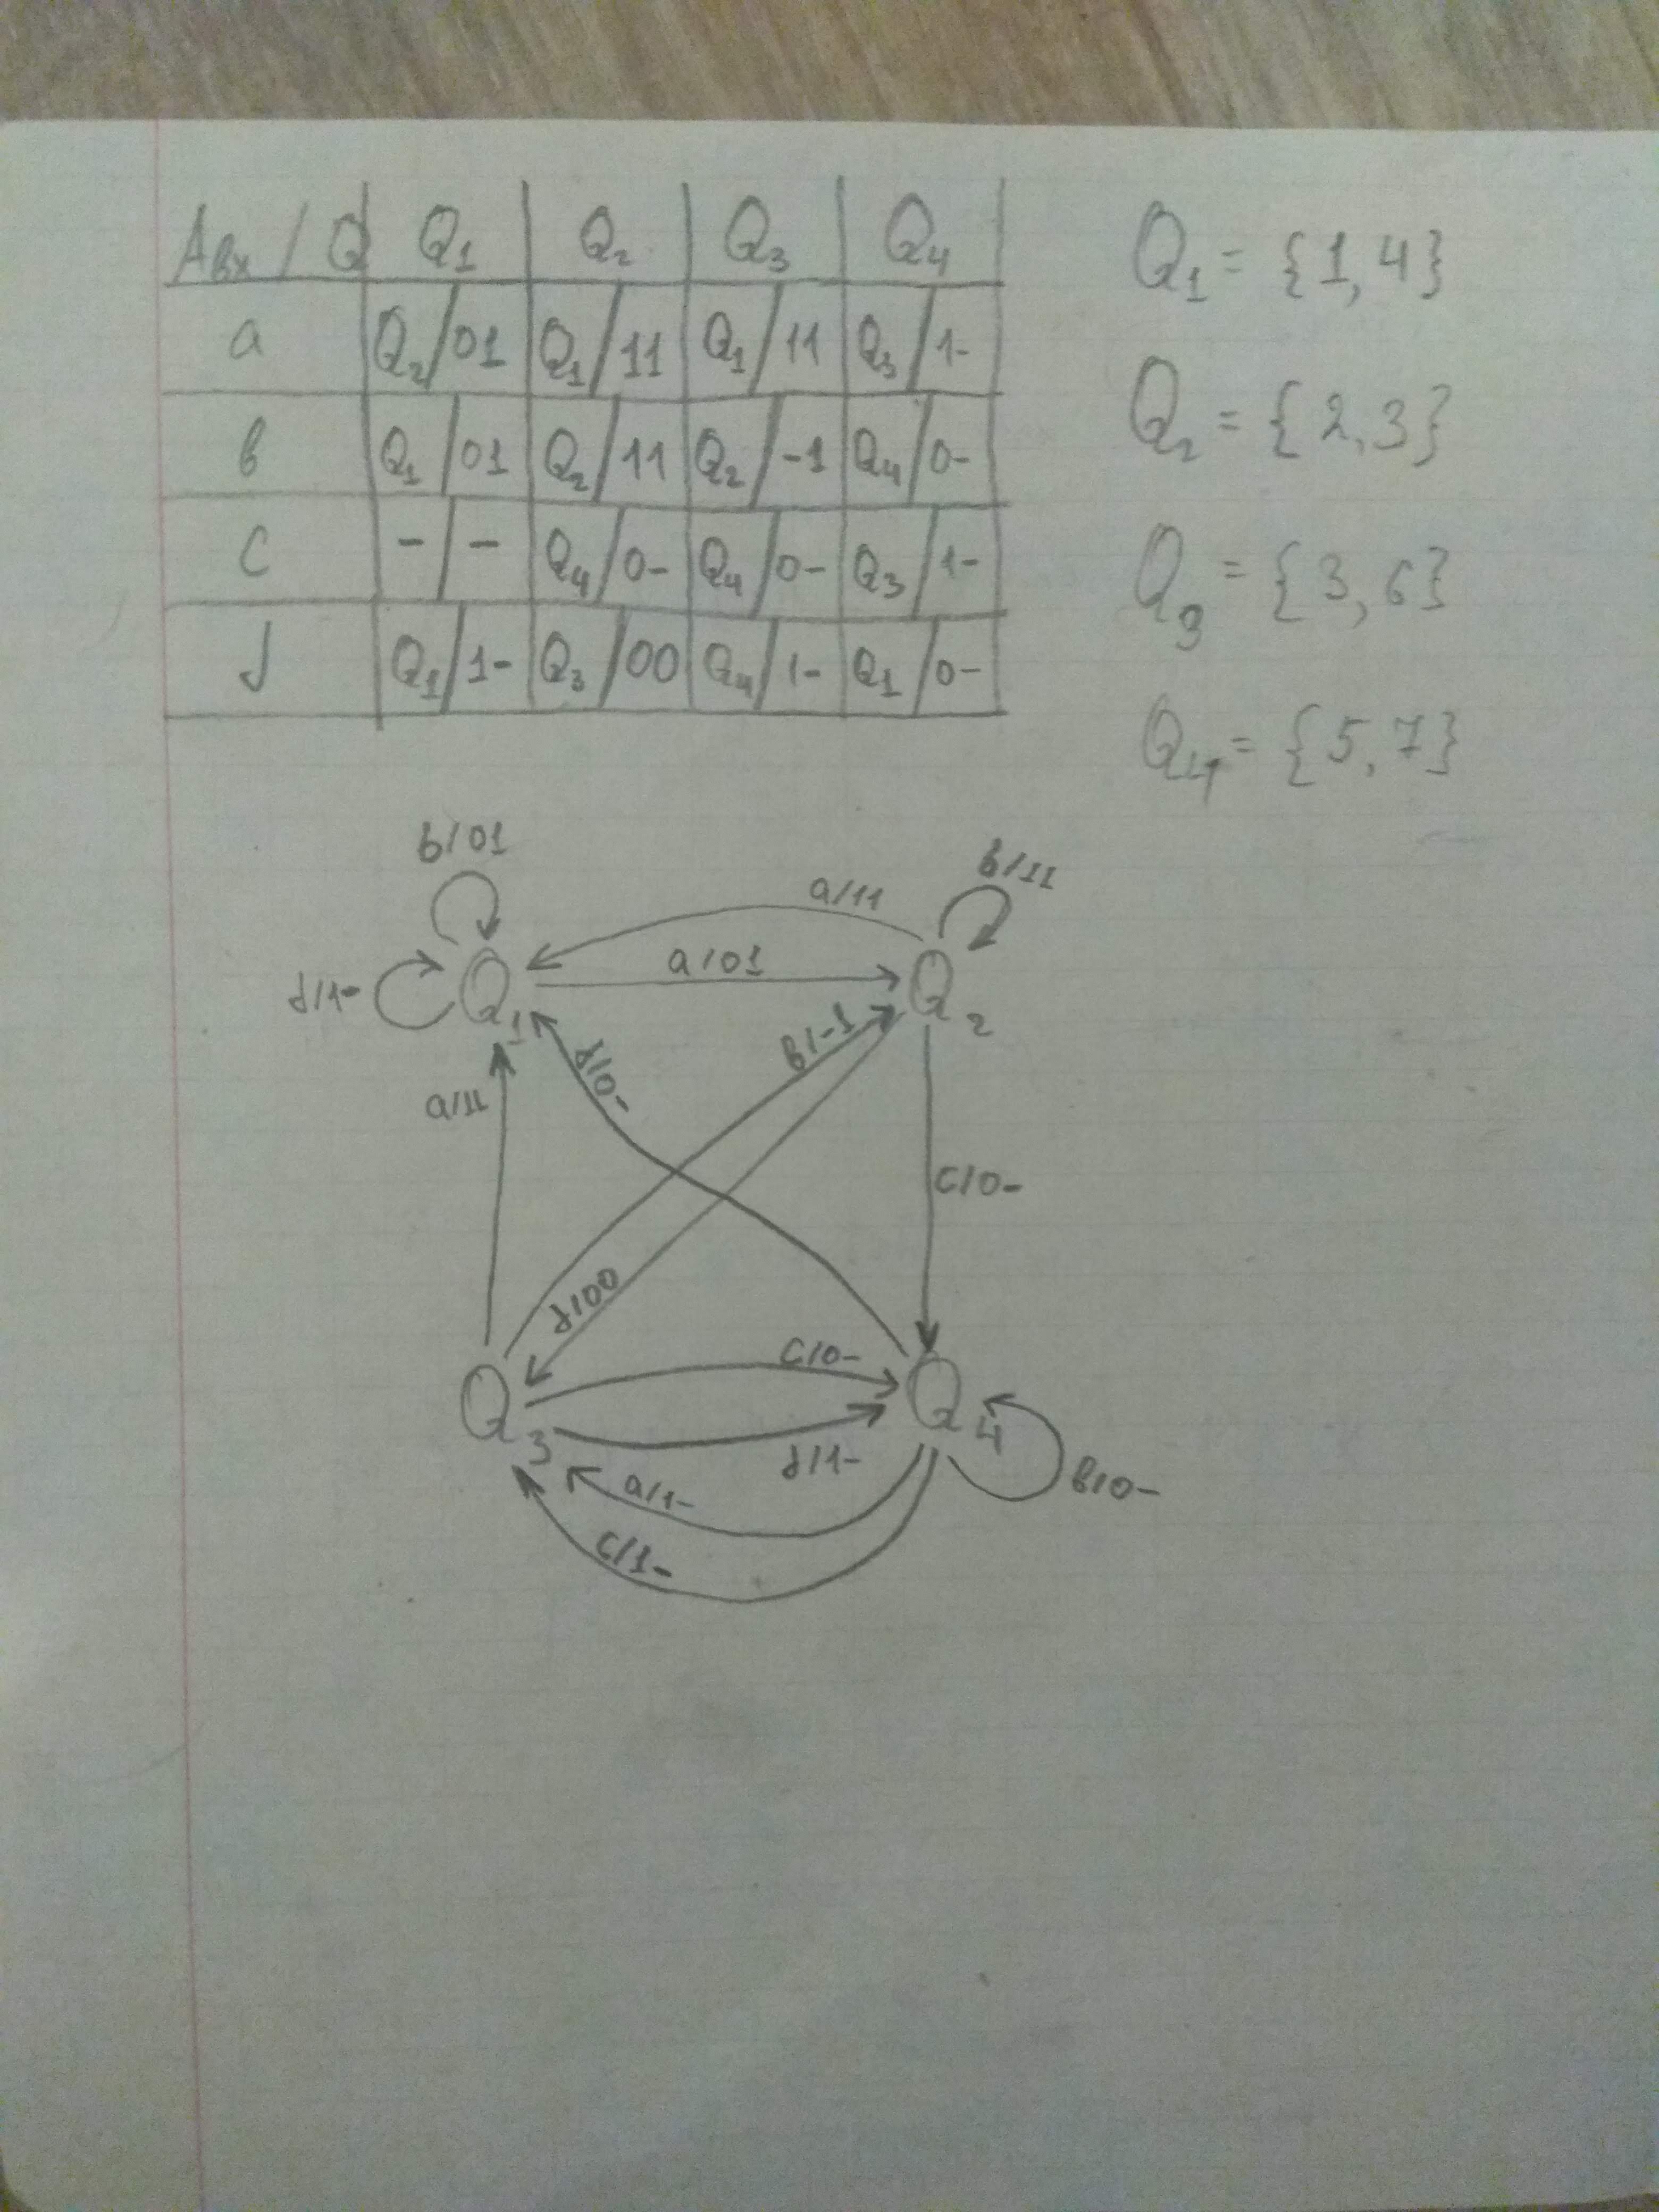 Aвх / Q Q1 Q2 Q3 Q4
a Q2/01 Q1/11 Q1/11 Q3/1-
в Q1/01 Q2/11 Q2/-1 Q4/0-
c -/- Q4/0- Q4/0- Q3/1-
d Q1/1- Q3/00 Q4/1- Q1/0-
Q1 = {1,4}
Q2 = {2,3}
Q3 = {3,6}
Q4 = {5,7}
b/01
в/11
a/11
a/01
d/1-
Q1
Q2
в/-1
d/0-
a/11
c/0-
d/00
c/0-
Q3
Q4
d/1-
в/0-
a/1-
c/1-